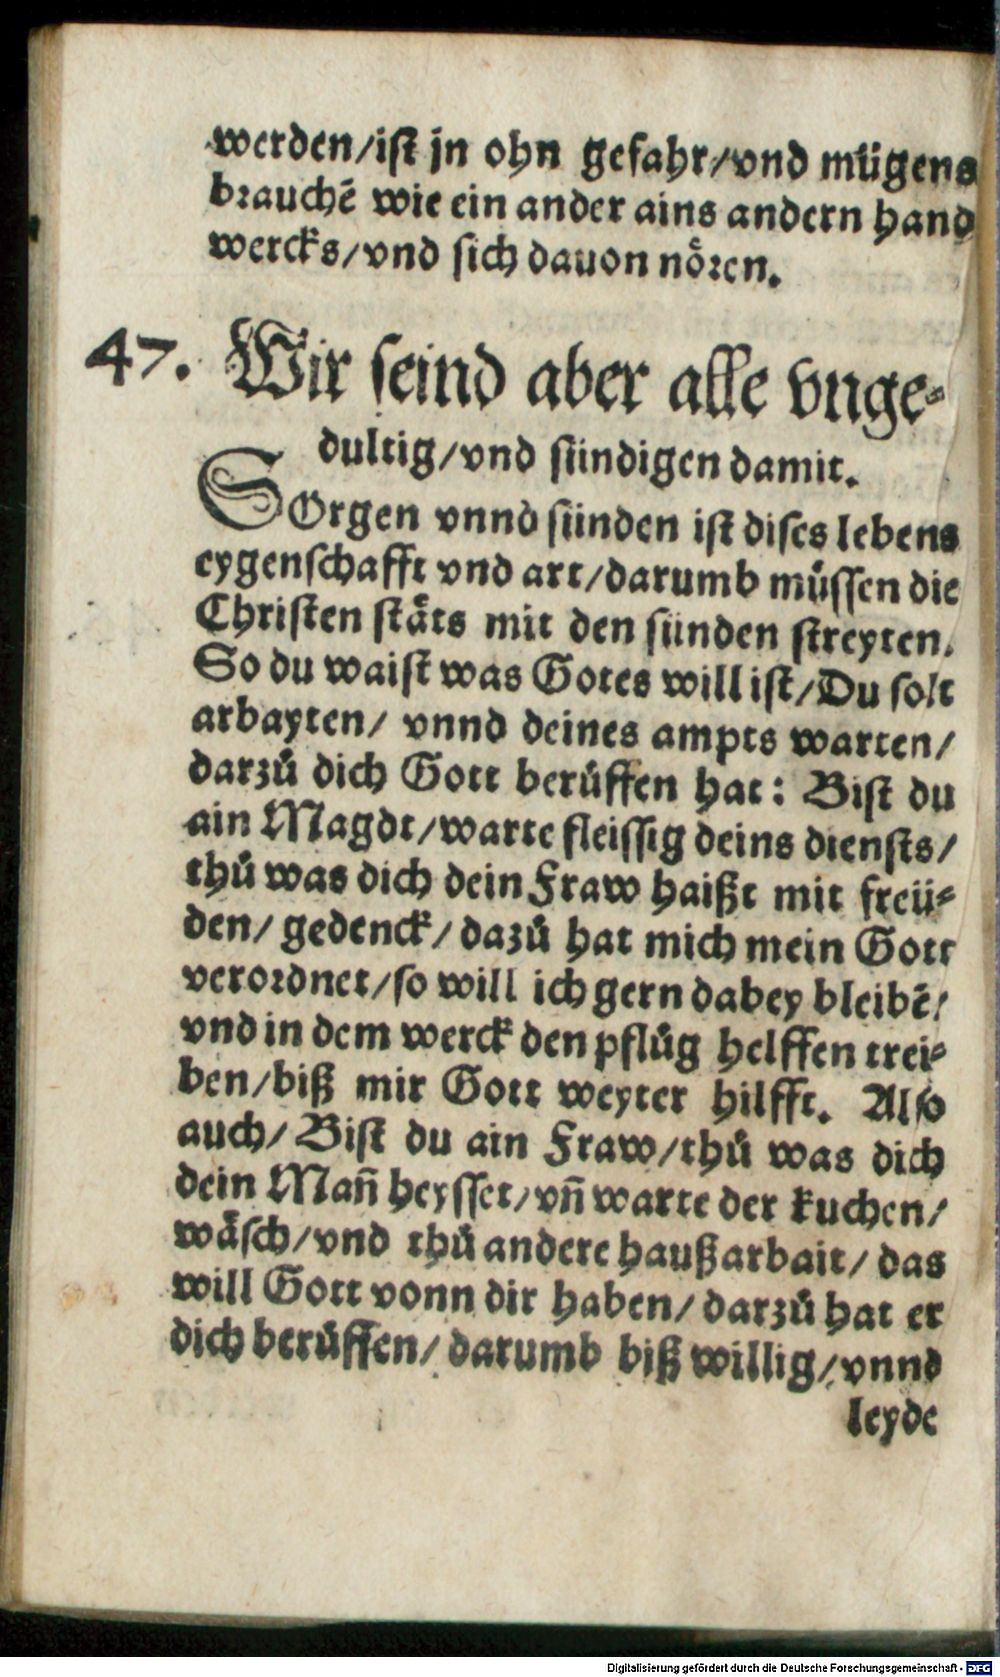 werden/ist jn ohn gefahr/vnd mügens
brauchẽ wie ein ander ains andern hand
wercks/vnd sich dauon nören.
47. Wir seind aber alle vnge-
dultig/vnd sündigen damit.
SOrgen vnnd sünden ist dises lebens
eygenschafft vnd art/darumb müssen die
Christen stäts mit den sünden streyten.
So du waist was Gotes will ist/Du solt
arbayten/ vnnd deines ampts warten/
darzů dich Gott berůffen hat: Bist du
ain Magdt/warte fleissig deins diensts/
thů was dich dein Fraw haißt mit freü-
den/ gedenck/ dazů hat mich mein Gott
verordnet/so will ich gern dabey bleibẽ/
vnd in dem werck den pflůg helffen trei-
ben/biß mir Gott weyter hilfft. Also
auch/ Bist du ain Fraw/thů was dich
dein Mañ heysset/vñ warte der kuchen/
wäsch/vnd thů andere haußarbait/ das
will Gott vonn dir haben/ darzů hat er
dich berůffen/ darumb biß willig/vnnd
leyde
Digitalisierung gefördert durch die Deutsche Forschungsgemeinschaft - DFG